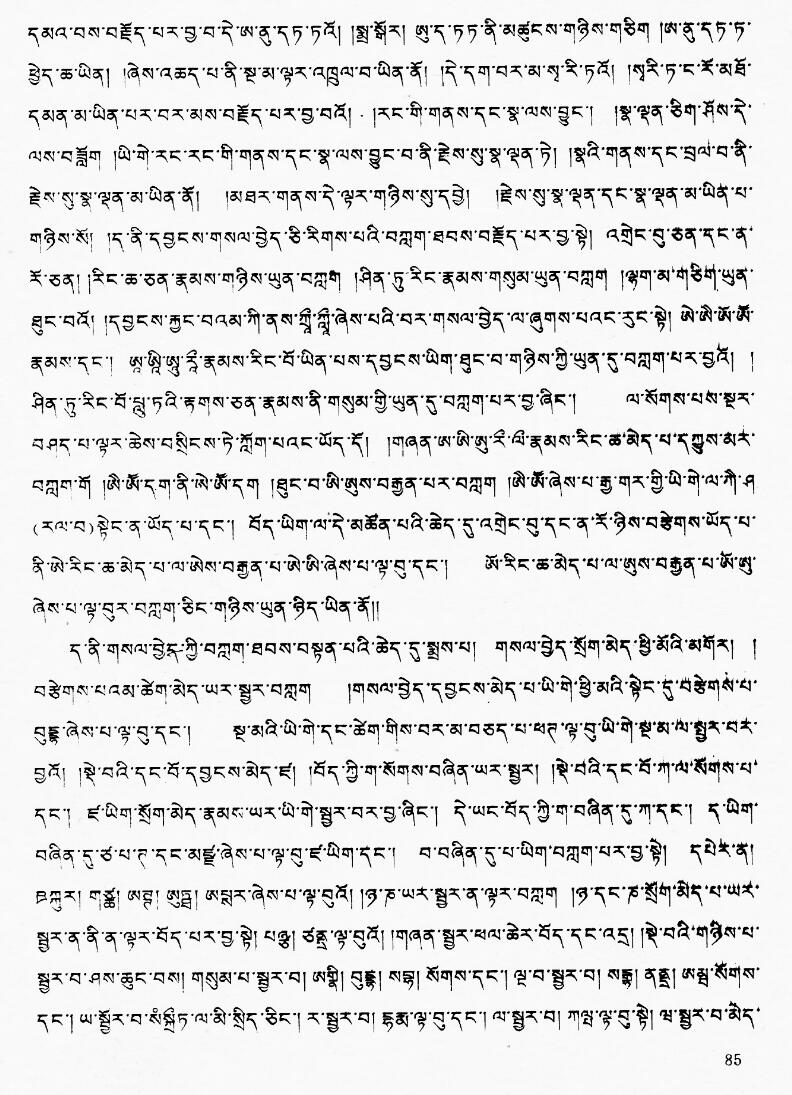 དམའ་བས་བརྗོད་པར་བྱ་བ་དེ་ཨ་ནུ་དཏ་ཏའོ། །སྨྲ་སྒོར། ཨུ་དཏཏ་ནི་མཚུངས་གཉིས་གཅིག །ཨ་ནུ་དཏ་ཏ་
ཕྱེད་ཆ་ཡིན། །ཞེས་འཆད་པ་ནི་སྔ་མ་ལྟར་འཁྲུལ་བ་ཡིན་ནོ། །དེ་དག་བར་མ་སྭ་རི་ཏའོ། །སྭ་རི་ཏ་ང་རོ་མཐོ་
དམན་མ་ཡིན་པར་བར་མས་བརྗོད་པར་བྱ་བའོ། །རང་གི་གནས་དང་སྣ་ལས་བྱུང་། །སྣ་ལྡན་ཅིག་ཤོས་དེ་
ལས་བཟློག །ཡི་གེ་རང་རང་གི་གནས་དང་སྣ་ལས་བྱུང་བ་ནི་རྗེས་སུ་སྣ་ལྡན་ཏེ། །སྣའི་གནས་དང་བྲལ་བ་ནི་
རྗེས་སུ་སྣ་ལྡན་མ་ཡིན་ནོ། །མཐར་གནས་དེ་ལྟར་གཉིས་སུ་དབྱེ། །རྗེས་སུ་སྣ་ལྡན་དང་སྣ་ལྡན་མ་ཡིན་པ་
གཉིས་སོ། །ད་ནི་དབྱངས་གསལ་བྱེད་ཅི་རིགས་པའི་བཀླག་ཐབས་བརྗོད་པར་བྱ་སྟེ། འགྲེང་བུ་ཅན་དང་ན་
རོ་ཅན། །རིང་ཆ་ཅན་རྣམས་གཉིས་ཡུན་བཀླག །ཤིན་ཏུ་རིང་རྣམས་གསུམ་ཡུན་བཀླག །ལྷག་མ་གཅིག་ཡུན་
ཐུང་བའོ། །དབྱངས་རྐྱང་བའམ་ཀི་ནས་ཀྲྀ་ཀླྀ་ཞེས་པའི་བར་གསལ་བྱེད་ལ་ཞུགས་པའང་རུང་སྟེ། ཨེ་ཨཻ་ཨོ་ཨཽ་
རྣམས་དང་། ཨཱ་ཨཱི་ཨཱུ་རཱྀ་རྣམས་རིང་པོ་ཡིན་པས་དབྱངས་ཡིག་ཐུང་བ་གཉིས་ཀྱི་ཡུན་དུ་བཀླག་པར་བྱའོ། །
ཤིན་ཏུ་རིང་པོ་པླུ་ཏའི་རྟགས་ཅན་རྣམས་ནི་གསུམ་གྱི་ཡུན་དུ་བཀླག་པར་བྱ་ཞིང་། ལ་སོགས་པས་སྔར་
བཤད་པ་ལྟར་ཆེས་བསྲིངས་ཏེ་ཀློག་པའང་ཡོད་དོ། །གཞན་ཨ་ཨི་ཨུ་རྀ་ལྀ་རྣམས་རིང་ཆ་མེད་པ་དཀྱུས་མར་
བཀླག་གོ །ཨཻ་ཨཽ་དག་ནི་ཨེ་ཨོ་དག །ཐུང་བ་ཨི་ཨུས་བརྒྱན་པར་བཀླག །ཨཻ་ཨཽ་ཞེས་པ་རྒྱ་གར་གྱི་ཡི་གེ་ལ་ཀཻ་ཤ
(རལ་བ)སྟེང་ན་ཡོད་པ་དང་། བོད་ཡིག་ལ་དེ་མཚོན་པའི་ཆེད་དུ་འགྲེང་བུ་དང་ན་རོ་ཉིས་བརྩེགས་ཡོད་པ་
ནི་ཨེ་རིང་ཆ་མེད་པ་ལ་ཨིས་བརྒྱན་པ་ཨེ་ཨི་ཞེས་པ་ལྟ་བུ་དང་། ཨོ་རིང་ཆ་མེད་པ་ལ་ཨུས་བརྒྱན་པ་ཨོ་ཨུ་
ཞེས་པ་ལྟ་བུར་བཀླག་ཅིང་གཉིས་ཡུན་ཉིད་ཡིན་ནོ།།
ད་ནི་གསལ་བྱེད་ཀྱི་བཀླག་ཐབས་བསྟན་པའི་ཆེད་དུ་སྨྲས་པ། གསལ་བྱེད་སྲོག་མེད་ཕྱི་མོའི་མགོར། །
བརྩེགས་པའམ་ཚེག་མེད་ཡར་སྦྱར་བཀླག །གསལ་བྱེད་དབྱངས་མེད་པ་ཡི་གེ་ཕྱི་མའི་སྟེང་དུ་བརྩེགས་པ་
བུདྡྷ་ཞེས་པ་ལྟ་བུ་དང་། སྔ་མའི་ཡི་གེ་དང་ཚེག་གིས་བར་མ་བཅད་པ་ཕཊ་ལྟ་བུ་ཡི་གེ་སྔ་མ་ལ་སྦྱར་བར་
བྱའོ། །སྡེ་བའི་དང་པོ་དབྱངས་མེད་ཛ། །བོད་ཀྱི་ག་སོགས་བཞིན་ཡར་སྦྱར། །སྡེ་བའི་དང་པོ་ཀ་ལ་སོགས་པ་
དང་། ཛ་ཡིག་སྲོག་མེད་རྣམས་ཡར་ཡི་གེ་སྦྱར་བར་བྱ་ཞིང་། དེ་ཡང་བོད་ཀྱི་ག་བཞིན་དུ་ཀ་དང་། ད་ཡིག་
བཞིན་དུ་ཙ་པ་ཊ་དང་མཛྫ་ཞེས་པ་ལྟ་བུ་ཛ་ཡིག་དང་། བ་བཞིན་དུ་པ་ཡིག་བཀླག་པར་བྱ་སྟེ། དཔེར་ན།
གཙྪ། ཨཊྚ། ཨུཏྤ། ཨཔྶར་ཞེས་པ་ལྟ་བུའོ། །ཉ་ཎ་ཡར་སྦྱར་ན་ལྟར་བཀླག །ཉ་དང་ཎ་སྲོག་མེད་པ་ཡར་
སྦྱར་ན་ནི་ན་ལྟར་བོད་པར་བྱ་སྟེ། པཉྩ། ཙནྡྲ་ལྟ་བུའོ། །གཞན་སྦྱར་ཕལ་ཆེར་བོད་དང་འདྲ། །སྡེ་བའི་གཉིས་པ་
སྦྱར་བ་ཤས་ཆུང་བས། གསུམ་པ་སྦྱར་བ། ཨགྣི། བུདྡྷ། སབྟ། སོགས་དང་། ལྔ་བ་སྦྱར་བ། སངྒྷ། ནནྡ། ཨམྦ་སོགས་
དང་། ཡ་སྦྱོར་བ་སཾསྐྲྀཏ་ལ་མི་སྲིད་ཅིང་། ར་སྦྱར་བ། དྷརྨ་ལྟ་བུ་དང་། ལ་སྦྱར་བ། ཀལྤ་ལྟ་བུ་སྟེ། ཝ་སྦྱར་བ་མེད་
85